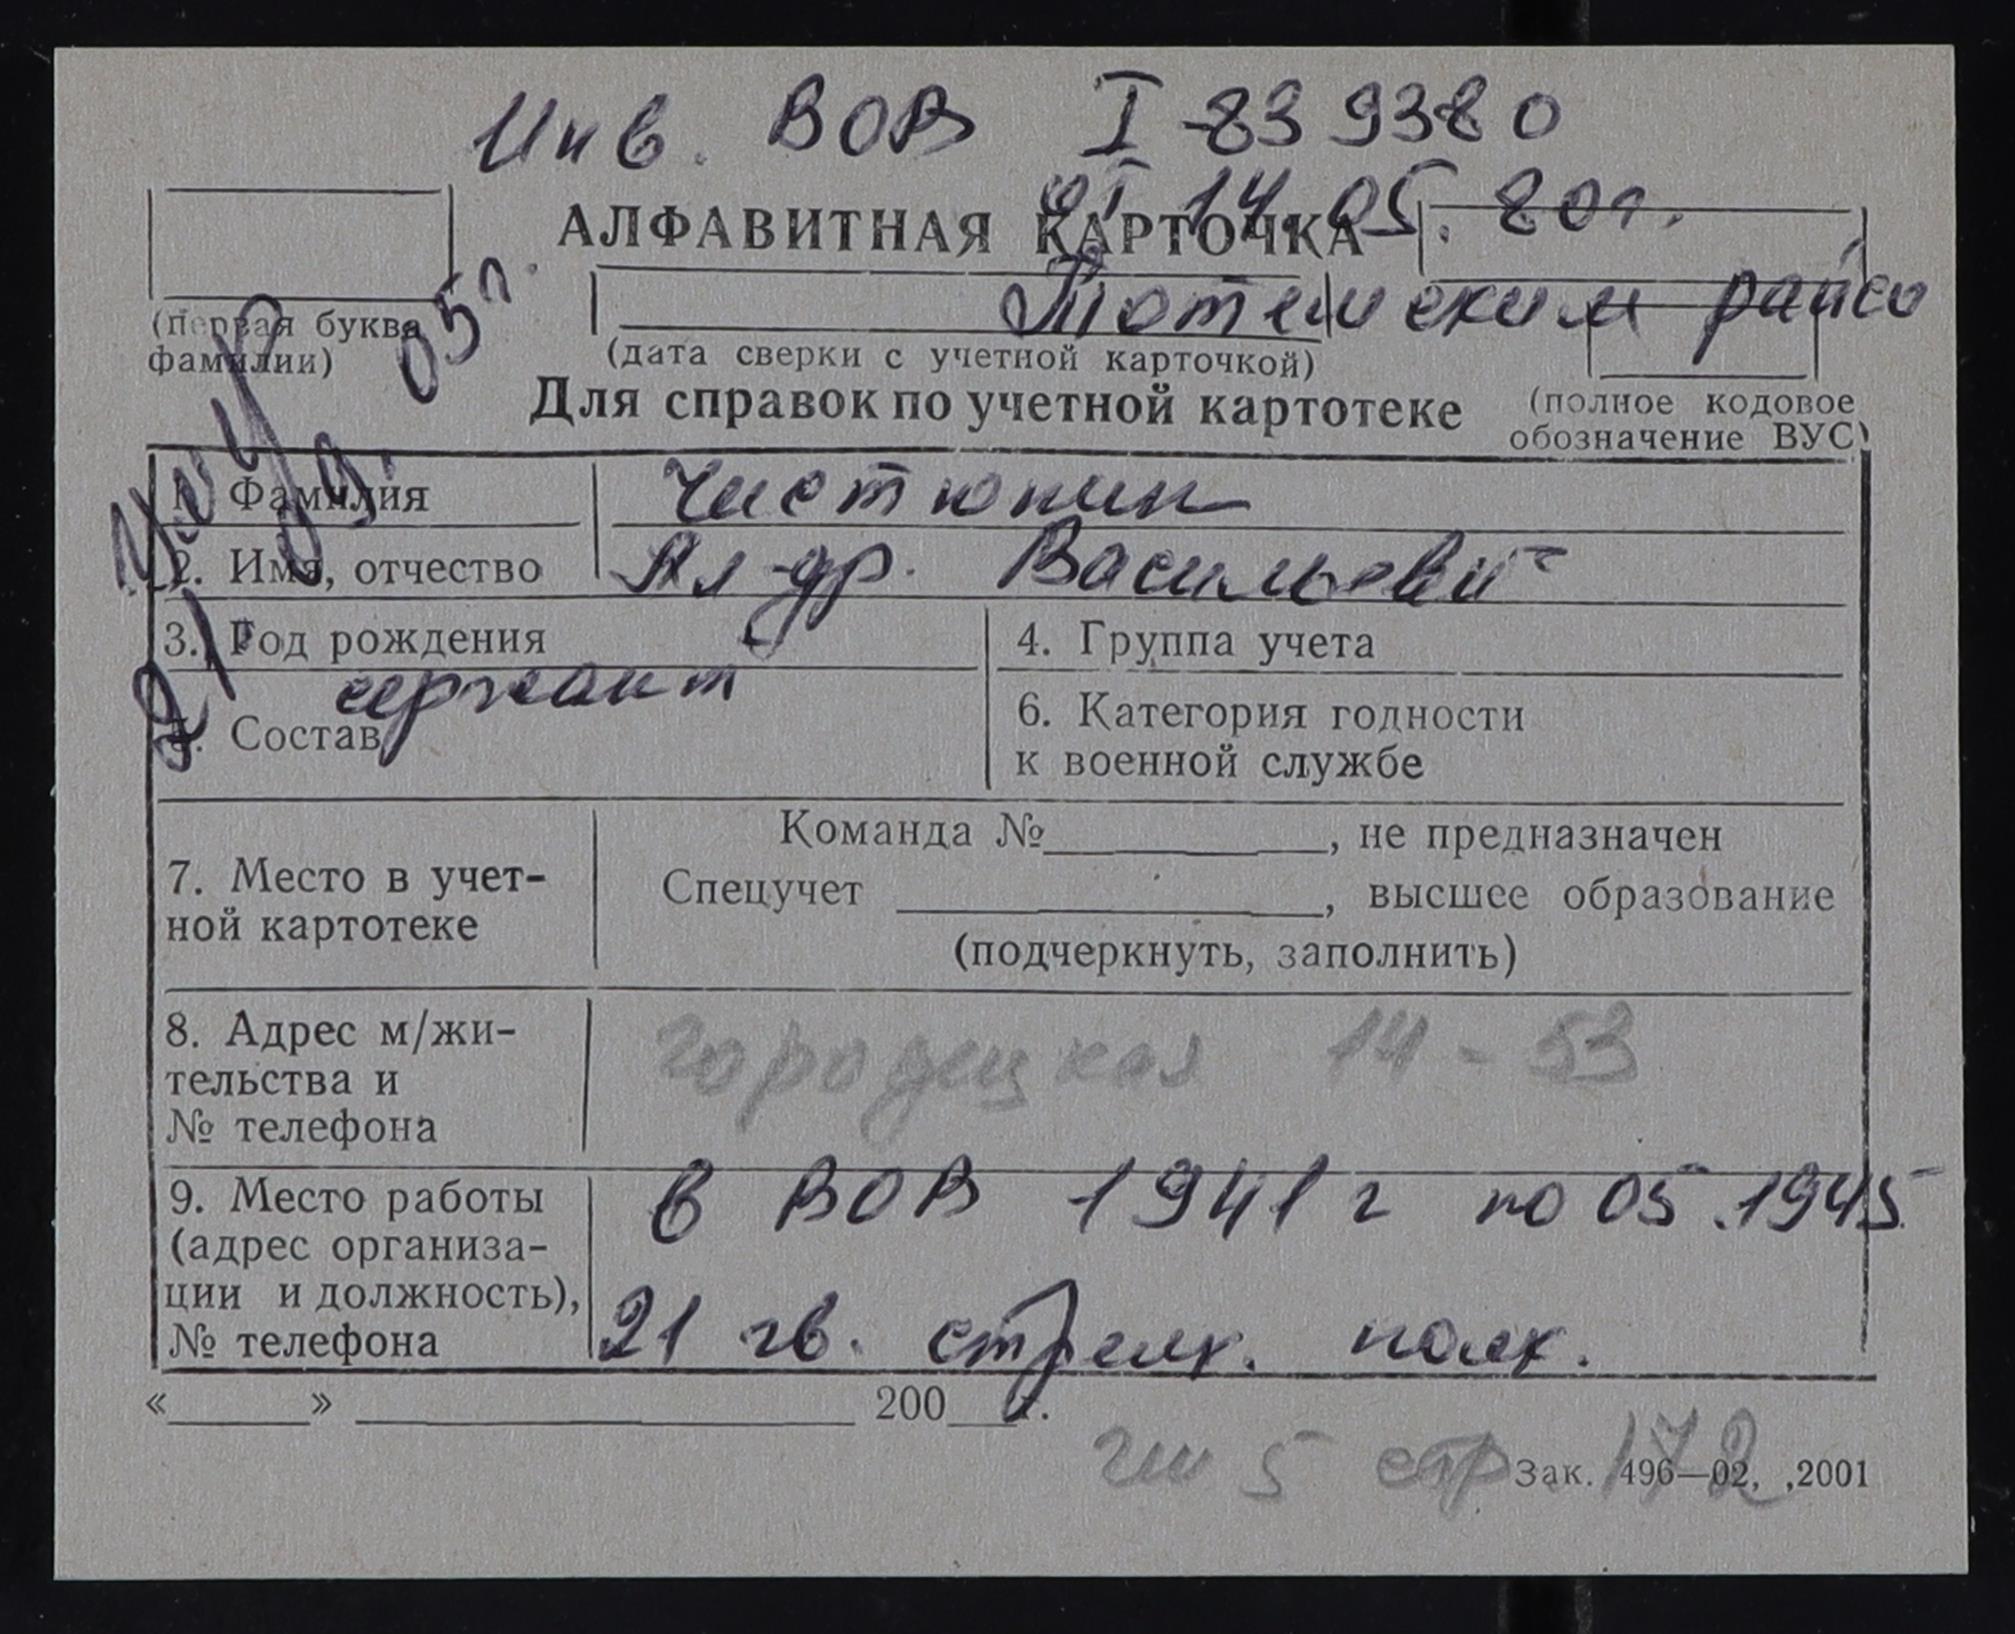 Инв. ВОВ I-839380
от 14.05.80г.
АЛФАВИТНАЯ КАРТОЧКА
Тотемским райсо
(первая буква
фамилии)
(дата сверки с учетной карточкой)
Для справок по учетной картотеке
(полное кодовое
обозначение ВУС)
05г.
1. Фамилия Чистюнин
2. Имя, отчество Ал-др. Васильевич
3. Год рождения
4. Группа учета
5. Состав сержант
6. Категория годности
к военной службе
7. Место в учет-
ной картотеке
Команда №, не предназначен
Спецучет, высшее образование
(подчеркнуть, заполнить)
8. Адрес м/жи-
тельства и
№ телефона
городецкая 14-53
9. Место работы
(адрес организа-
ции и должность),
№ телефона
в ВОВ 1941г по 05.1945
21 гв. стрелк. полк.
« » 200 г.
стр 172
Зак. 496—02, ,2001